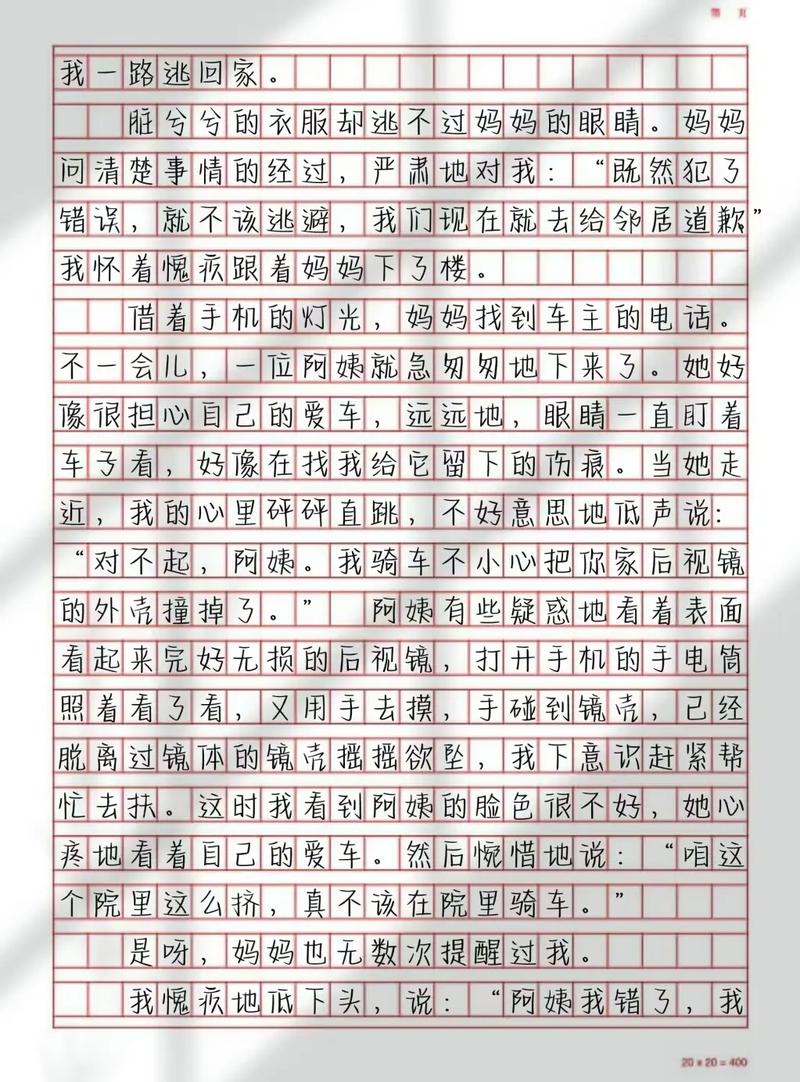 第 页
我一路逃回家。
脏兮兮的衣服却逃不过妈妈的眼睛。妈妈
问清楚事情的经过，严肃地对我：“既然犯了
错误，就不该逃避，我们现在就去给邻居道歉”
我怀着愧疚跟着妈妈下了楼。
借着手机的灯光，妈妈找到车主的电话。
不一会儿，一位阿姨就急匆匆地下来了。她好
像很担心自己的爱车，远远地，眼睛一直盯着
车子看，好像在找我给它留下的伤痕。当她走
近，我的心里砰砰直跳，不好意思地低声说：
“对不起，阿姨。我骑车不小心把你家后视镜
的外壳撞掉了。” 阿姨有些疑惑地看着表面
看起来完好无损的后视镜，打开手机的手电筒
照着看了看，又用手去摸，手碰到镜壳，已经
脱离过镜体的镜壳摇摇欲坠，我下意识赶紧帮
忙去扶。这时我看到阿姨的脸色很不好，她心
疼地看着自己的爱车。然后惋惜地说：“咱这
个院里这么挤，真不该在院里骑车。”
是呀，妈妈也无数次提醒过我。
我愧疚地低下头，说：“阿姨我错了，我
20×20=400